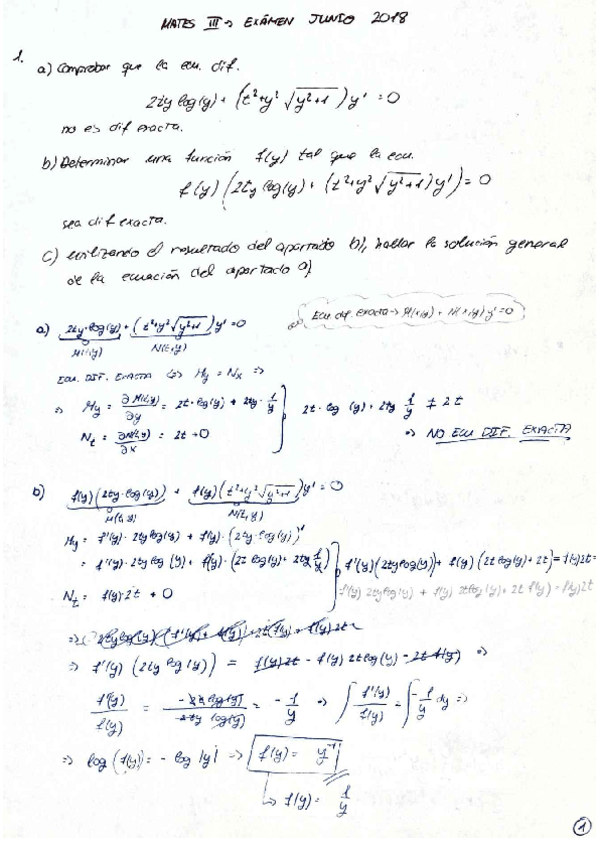 MATES III → EXÁMEN JUNIO 2018
1.
a) Comprobar que la ecu. dif.
2ty log(y) + (t²+y² √(y²+1)) y' = 0
no es dif exacta.
b) Determinar una función f(y) tal que la ecu.
f(y) (2ty log(y) + (t²+y² √(y²+1)) y') = 0
sea dif exacta.
c) utilizando el resultado del apartado b), hallar la solución general
de la ecuación del apartado a)
a) 2ty·log(y) + (t²+y² √(y²+1)) y' = 0
M(t,y) N(t,y)
Ecu. dif. exacta → M(x,y) + N(x,y) y' = 0
ECU. DIF. EXACTA ⇔ My = Nx ⇒
⇒ My = ∂M(t,y)/∂y = 2t·log(y) + 2ty·1/y } 2t·log(y) + 2ty 1/y ≠ 2t
Nt = ∂N(t,y)/∂x = 2t+0 ⇒ NO ECU DIF. EXACTA
b) f(y)(2ty·log(y)) + f(y)(t²+y² √(y²+1)) y' = 0
M(t,y) N(t,y)
My = f'(y)·2ty log(y) + f(y)·(2ty·log(y))'
= f'(y)·2ty log(y) + f(y)·(2t log(y) + 2ty 1/y) } f'(y)(2ty log(y)) + f(y)(2t log(y) + 2t) = f(y)2t =
Nt = f(y)·2t + 0 = f'(y) 2ty log(y) + f(y) 2t log(y) + 2t f(y) = f(y)2t
⇒ f'(y) (2ty log(y)) = f(y)2t - f(y) 2t log(y) - 2t f(y) ⇒
f'(y)/f(y) = -2t log(y)/2ty log(y) = -1/y ⇒ ∫ f'(y)/f(y) = ∫ -1/y dy ⇒
⇒ log(f(y)) = -log|y| ⇒ f(y) = y⁻¹
↳ f(y) = 1/y
1